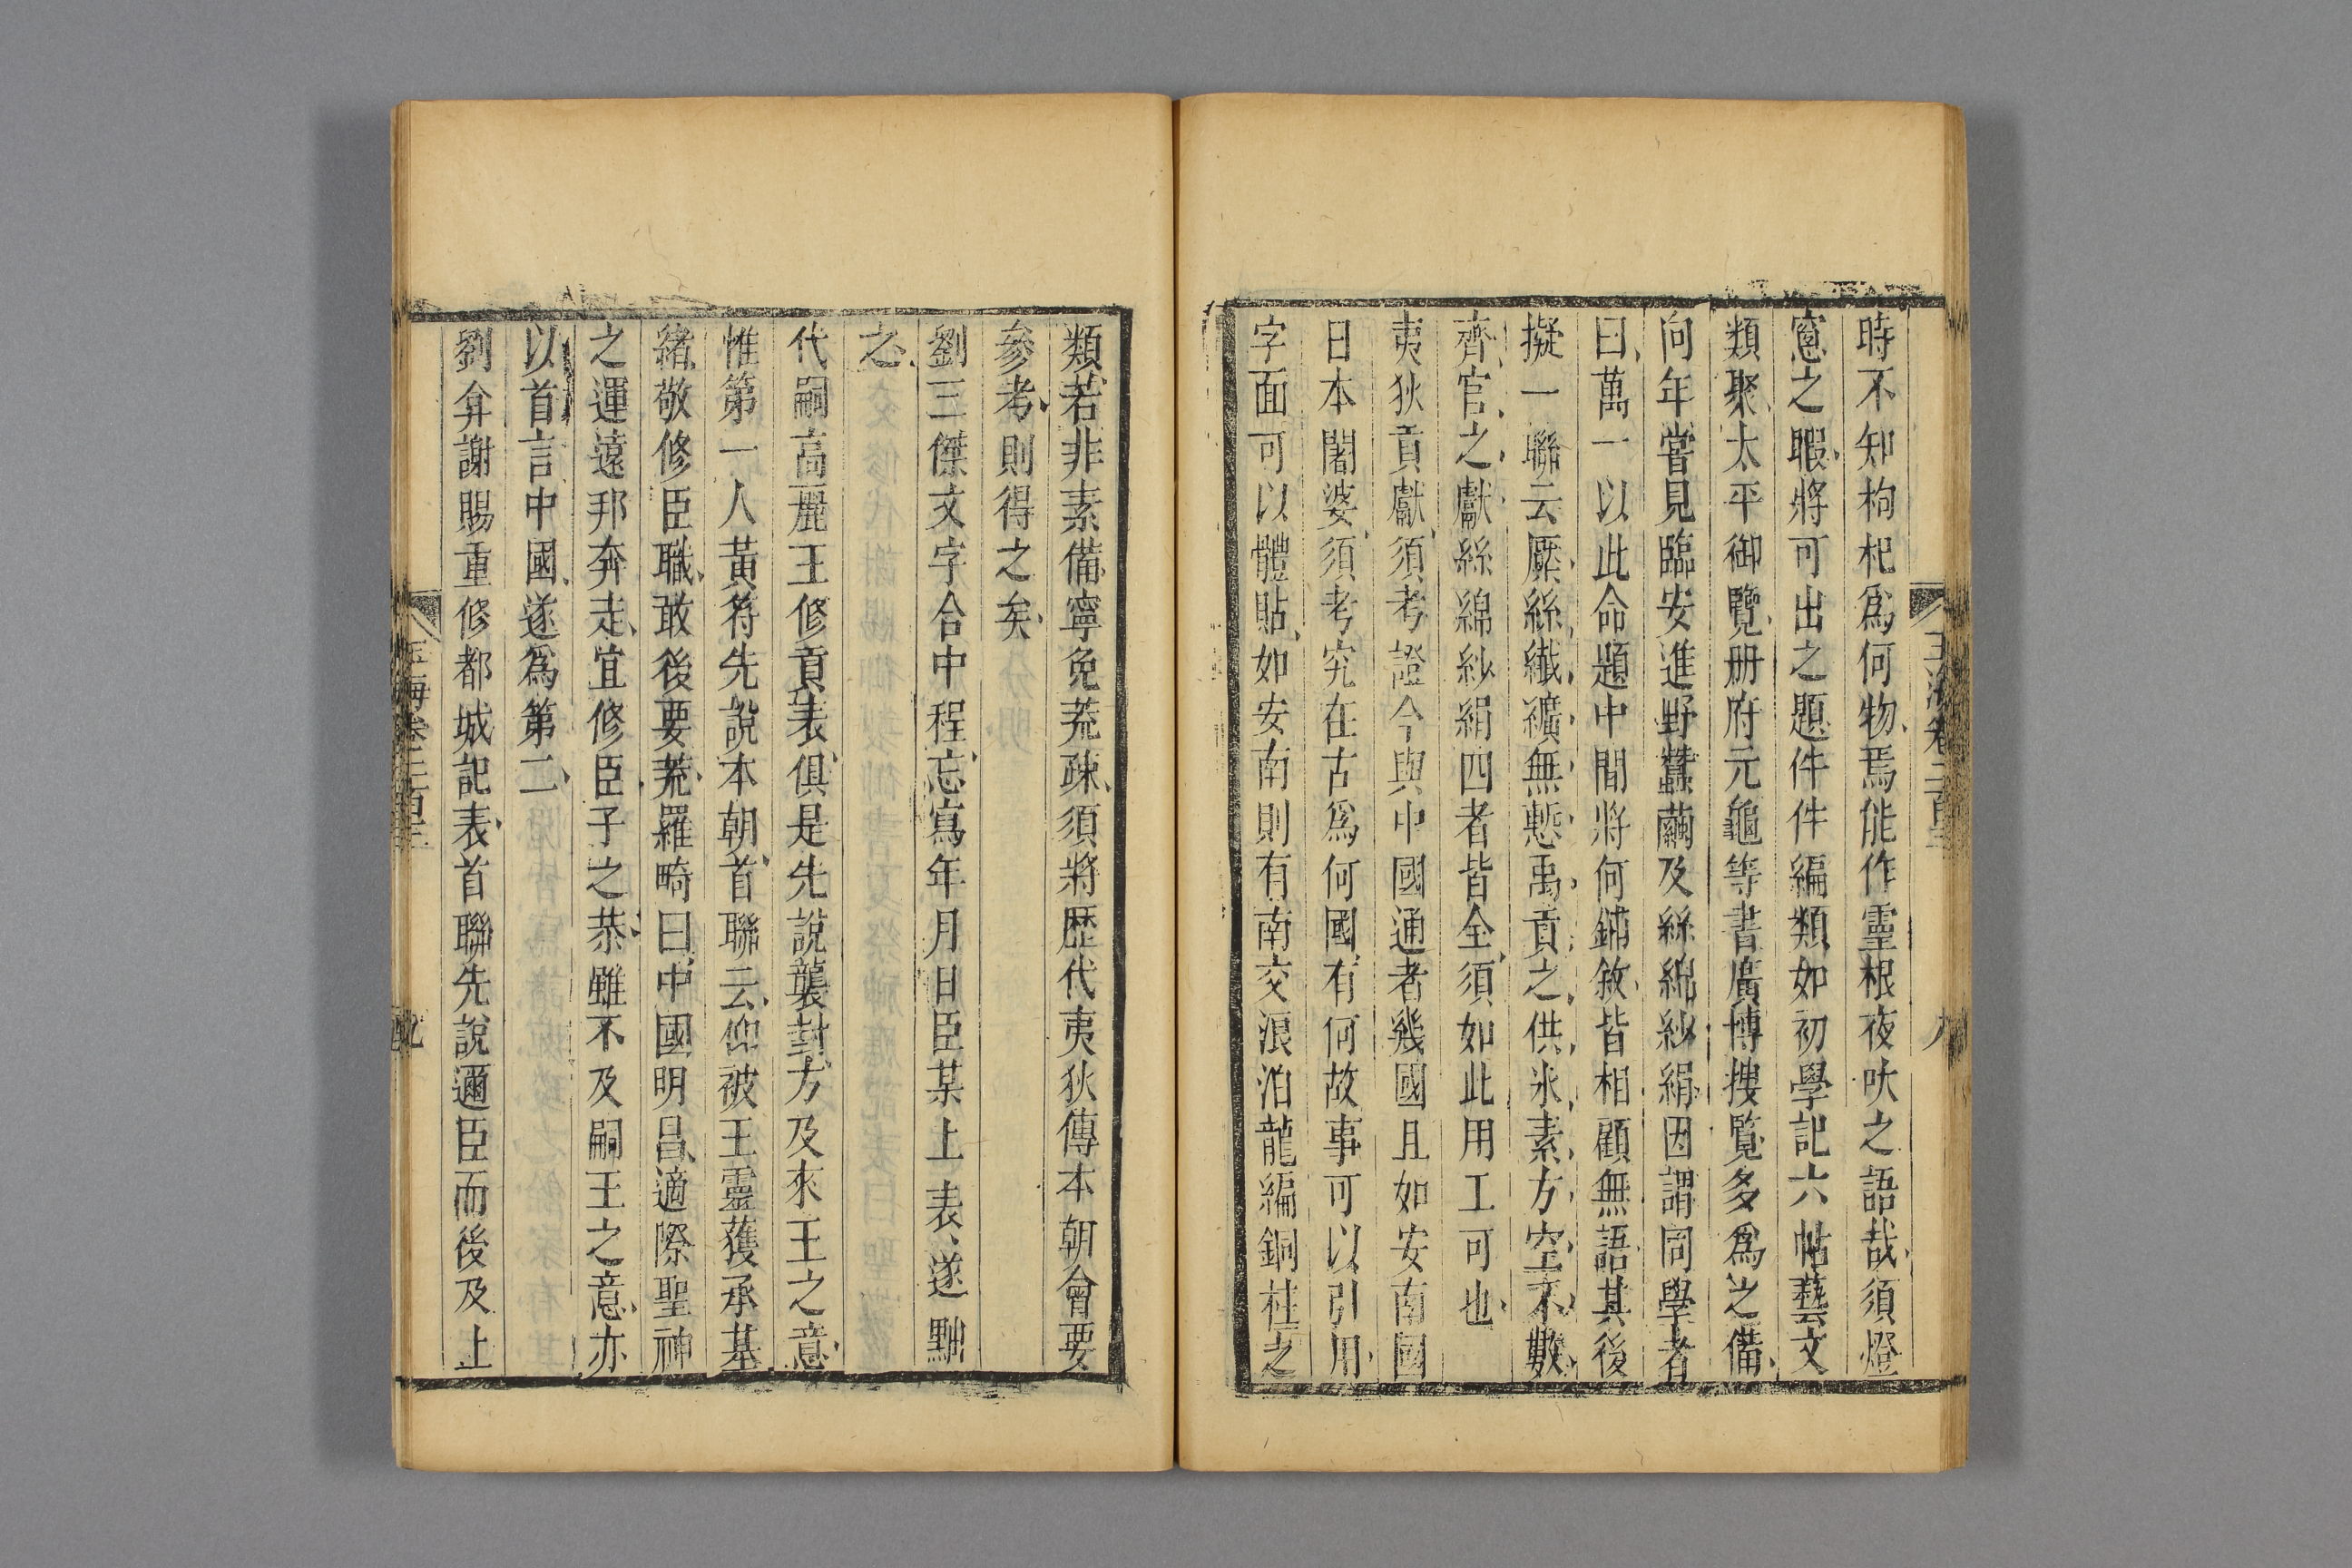 時不知枸杞爲何物焉能作靈根夜吠之語哉須燈
窻之暇將可出之題件件編類如初學記六帖藝文
類聚太平御覽册府元龜等書廣博搜覧多爲之備
向年嘗見臨安進野蠶繭及絲綿紗絹因謂同學者
曰萬一以此命題中間將何鋪敘皆相顧無語其後
擬一聯云厥絲纎纊無慙禹貢之供氷素方空不數
齊官之獻絲綿紗絹四者皆全須如此用工可也
夷狄貢獻須考證今與中國通者幾國且如安南國
日本闍婆須考究在古爲何國有何故事可以引用
字面可以體貼如安南則有南交浪泊龍編銅柱之
類若非素備寧免荒疎須將歷代夷狄傳本朝會要
參考則得之矣
劉三傑文字合中程忘寫年月日臣某上表遂黜
之
代嗣高麗王修貢表俱是先說襲封方及來王之意
惟第一人黃符先說本朝首聯云仰被王靈獲承基
緒敬修臣職敢後要荒羅畸曰中國明昌適際聖神
之運遠邦奔走宜修臣子之恭雖不及嗣王之意亦
以首言中國遂爲第二
劉弇謝賜重修都城記表首聯先說邇臣而後及上
玉海卷二百三